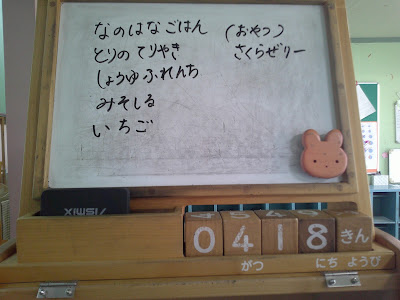 なのはなごはん
とりのてりやき
しょうゆふれんち
みそしる
いちご
(おやつ)
さくらぜりー
0418きん
がつ にち ようび